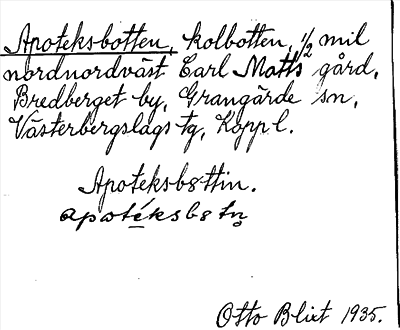 Apoteksbotten, kolbotten, 1/2 mil
nordnordväst Carl Matts gård,
Bredberget by, Grangärde sn,
Västerbergslags tg, Kopp l.
Apoteksbåttin.
apotéksbåtn̥
Otto Blixt 1935.